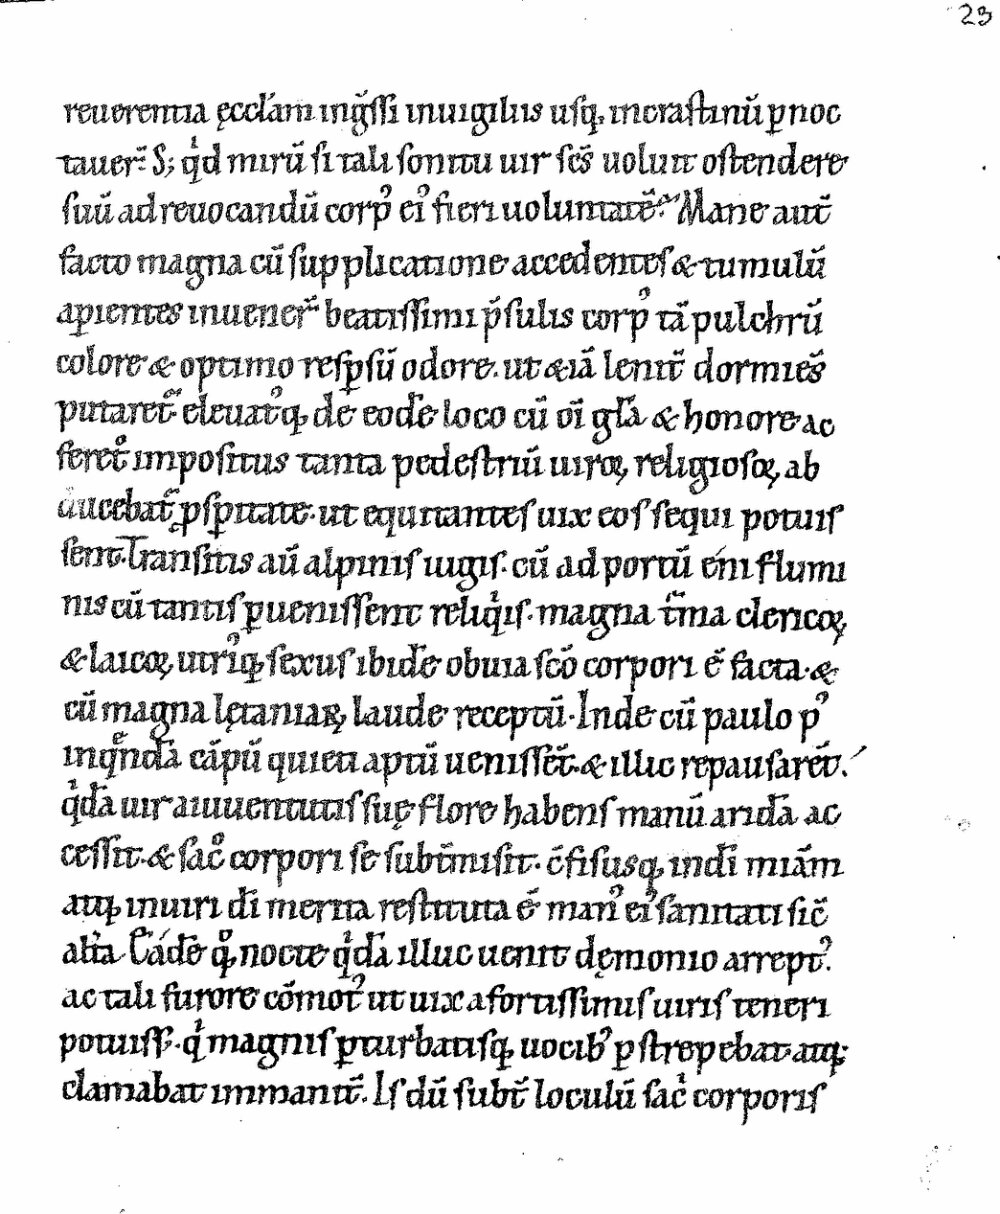 23
reuerentia ęccłam ingͬssi inuigiliis usq; incrastinū ꝑnoc
tauer̄. S; qͥd mirū si tali sonitu uir scs̄ uoluit ostendere
suū adreuocandū corpꝰ eiꝰ fieri uoluntatē. Mane aut̄
facto magna cū supplicatione accedentes & tumulū
aꝑientes inuener̄ beatissimi p̄sulis corpꝰ tā pulchrū
colore & optimo resꝑsū odore. ut & iā lenit̄ dormies̄
putaret᷑ eleuatꝰq; de eodē loco cū oī gła & honore ac
feretͦ impositus tanta pedestriū uiroꝝ religiosoꝝ ab
ducebat᷑ ꝓsꝑitate. ut equitantes uix eos sequi potuis
sent. Transitis aū alpinis iugis. cū ad portū eni flumi
nis cū tantis ꝑuenissent reliqͥis. magna t᷑ma clericoꝝ
& laicoꝝ utriꝰq; sexus ibidē obuia scō corpori ē facta. &
cū magna lętaniaꝝ laude receptū. Inde cū paulo pꝰ
inqͤndā cāpū quieti aptū uenissēt. & illic repausarēt.
qͥdā uir aiuuentutis suę flore habens manū aridā ac
cessit. & sacͦ corpori se subt᷑misit. c̄fisusq; indi̅ miā̅m
atq; inuiri di̅ merita restituta ē manꝰ eiꝰ sanitati sic̄
alťa. Eādē qͦq; nocte qͥdā illuc uenit dęmonio arreptꝰ.
ac tali furore cōmotꝰ ut uix afortissimis uiris teneri
potuiss̄. qͥ magnis ꝑturbatisq; uocibꝰ ꝑstrepebat atq;
clamabat immanit̄. Is dū subt̄ loculū sacͥ corporis